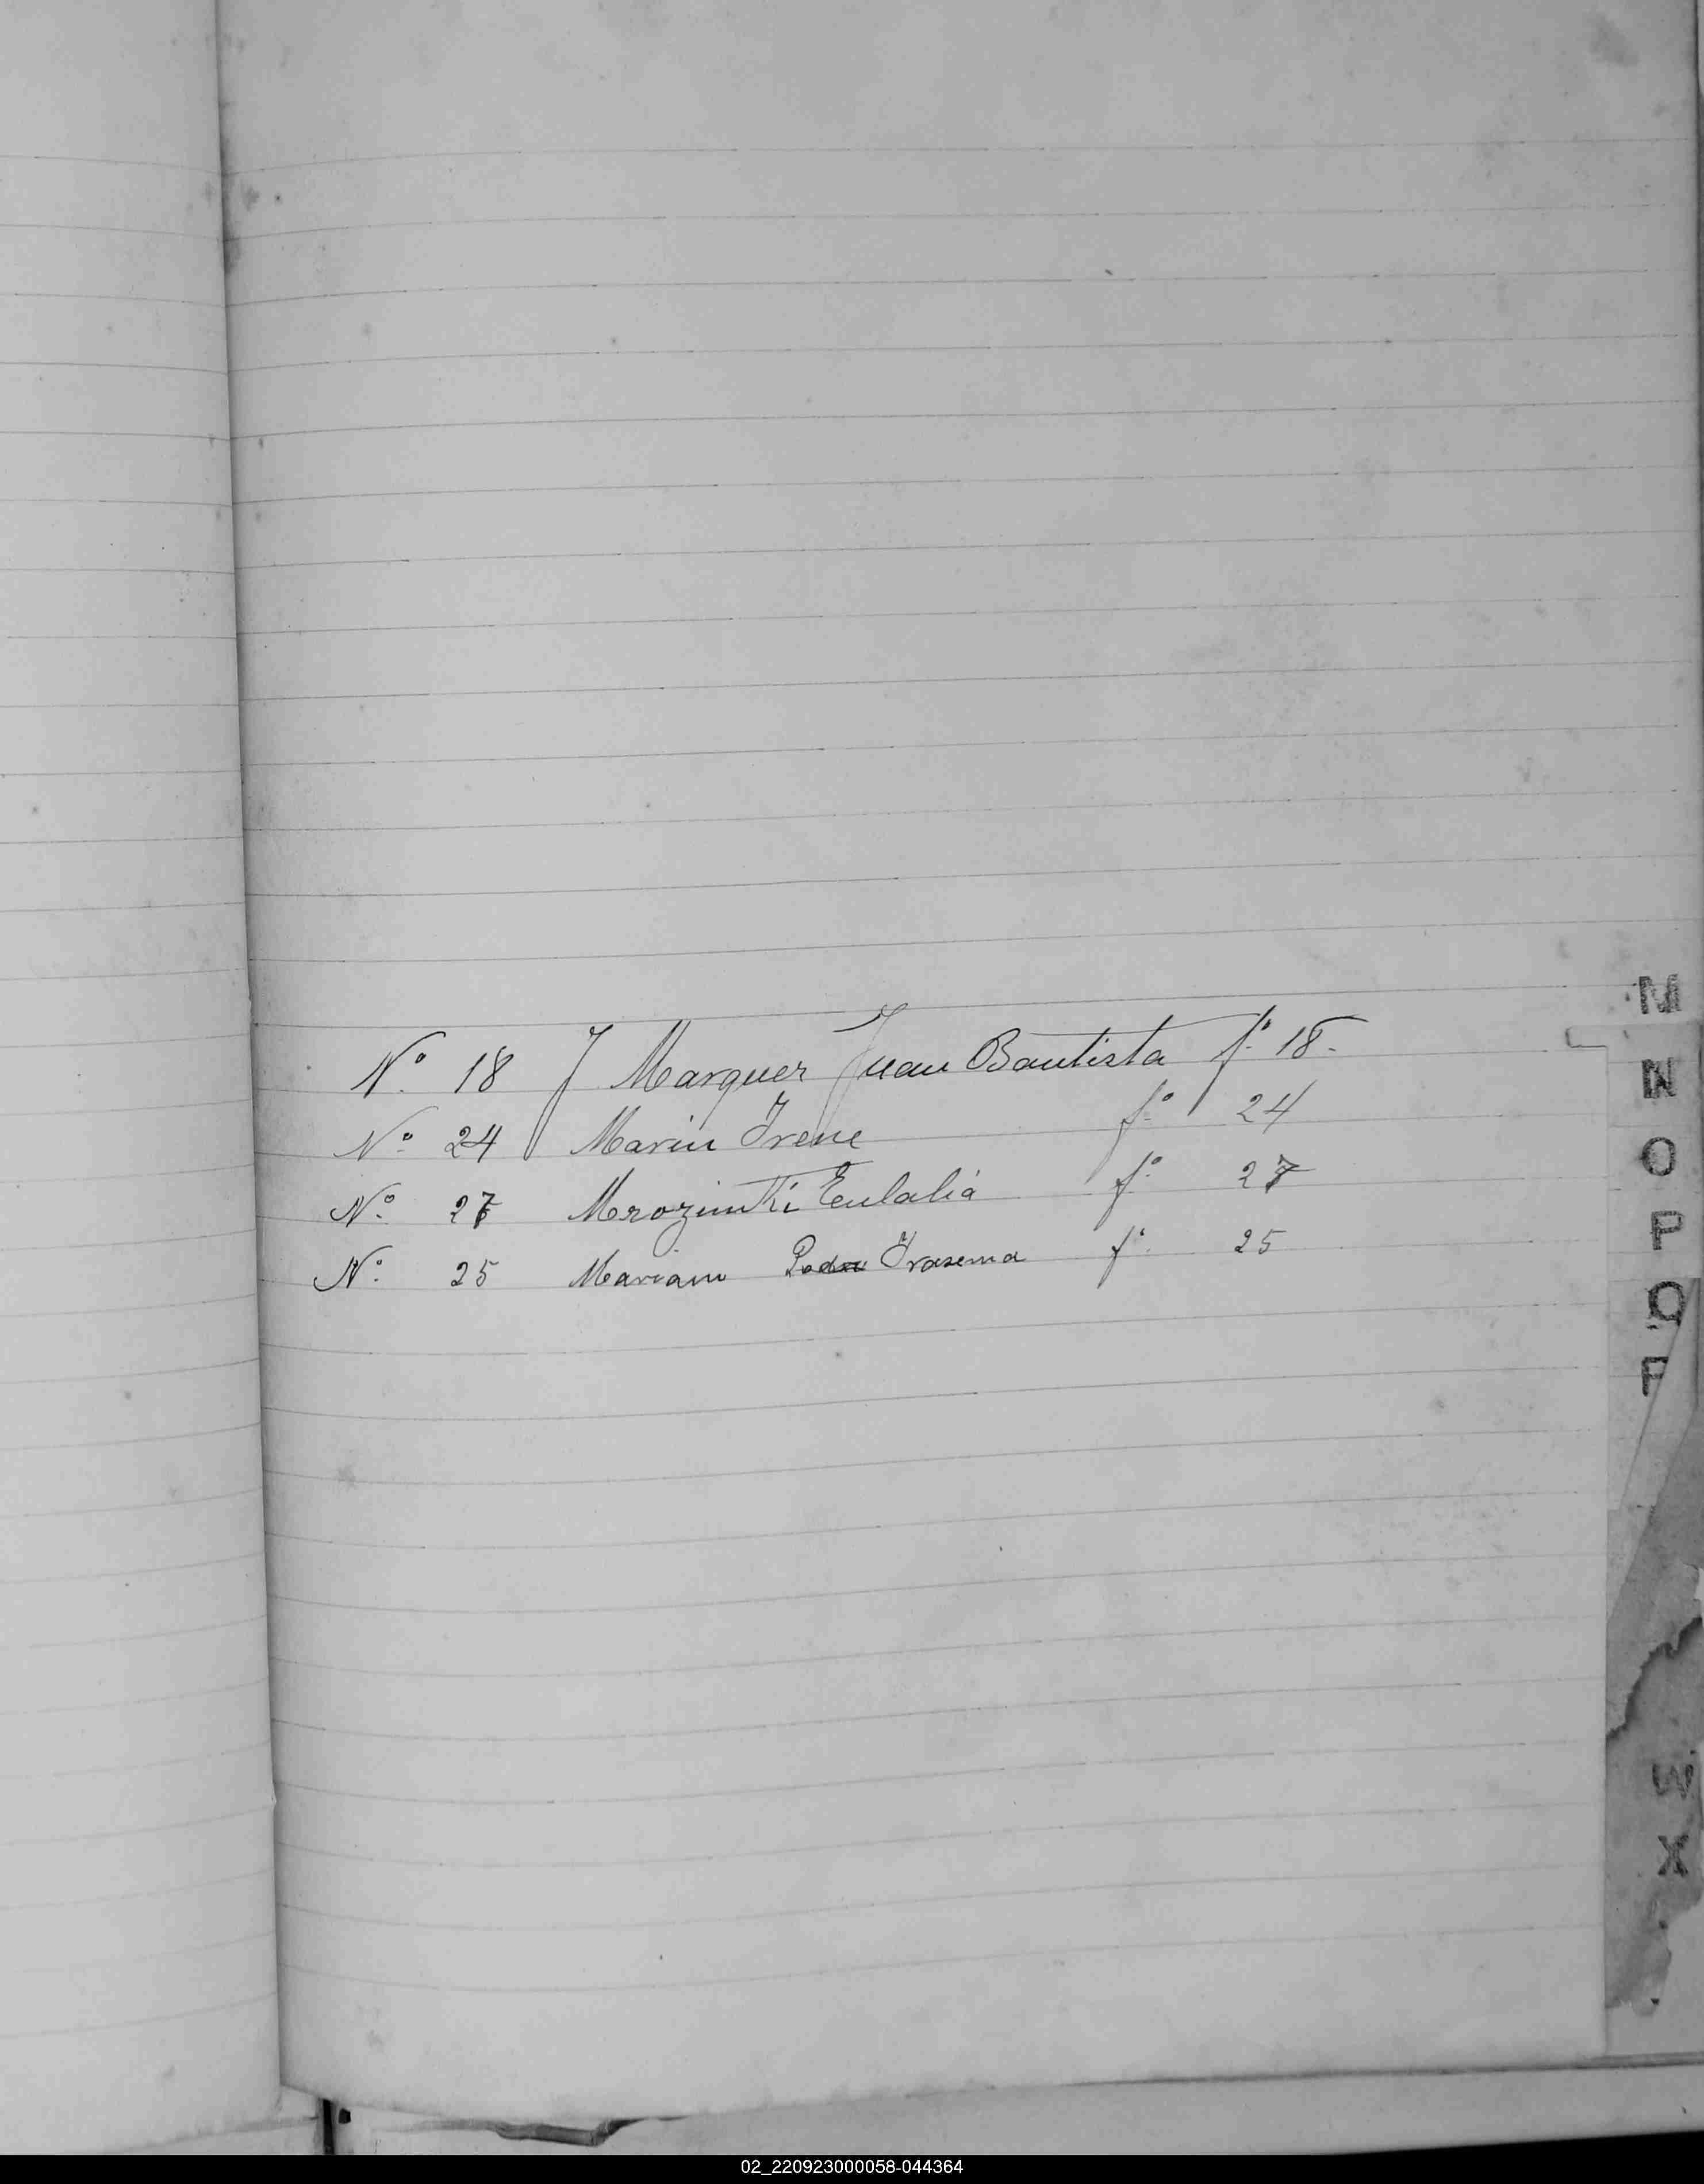 Nº 18 J Marquez Juan Bautista fº 18.
Nº 24 Marin Irene fº 24
Nº 27 Eulalia fº 27
Nº 25 Mariani Irasema fº 25
M
N
O
P
Q
W
X
02_220923000058-044364